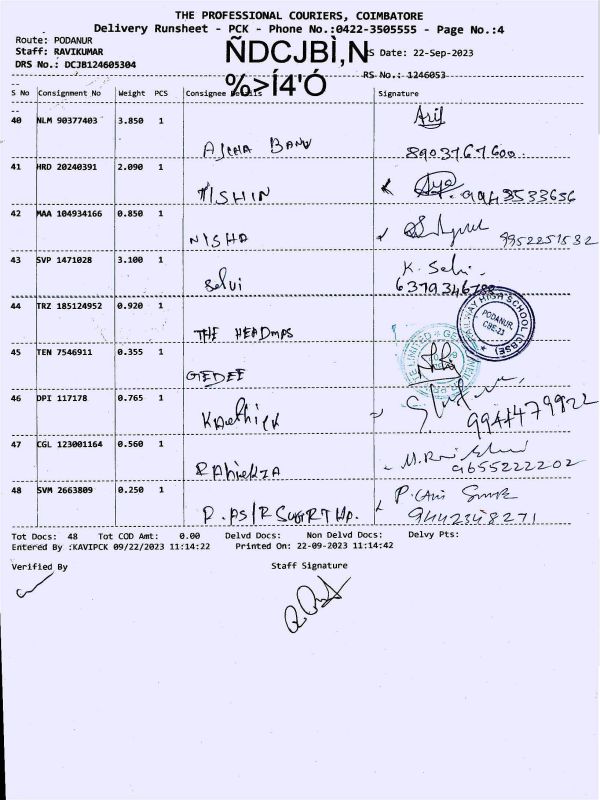 THE PROFESSIONAL COURIERS, COIMBATORE
Delivery Runsheet - PCK - Phone No.:0422-3505555 - Page No.:4
Route: PODANUR
Staff: RAVIKUMAR ÑDCJBÌ,N S Date: 22-Sep-2023
DRS No.: DCJB124605304 %>Í4'Ó RS No.: 1246053
S No Consignment No Weight PCS Consignee Details Signature
40 NLM 90377403 3.850 1
BANU 8903767600
41 HRD 20240391 2.090 1
TISHIN 9943533656
42 MAA 104934166 0.850 1
NISHA 9952251532
43 SVP 1471028 3.100 1 K. Selvi
Selvi
44 TRZ 185124952 0.920 1
THE HEADMPS
RAILWAY HIGH SCHOOL (CBSE)
PODANUR, CBE-23
45 TEN 7546911 0.355 1
GEDEE
46 DPI 117178 0.765 1
KARthick
47 CGL 123001164 0.560 1
9655222202
48 SVM 2663809 0.250 1
9442348271
Tot Docs: 48 Tot COD Amt: 0.00 Delvd Docs: Non Delvd Docs: Delvy Pts:
Entered By :KAVIPCK 09/22/2023 11:14:22 Printed On: 22-09-2023 11:14:42
Verified By Staff Signature